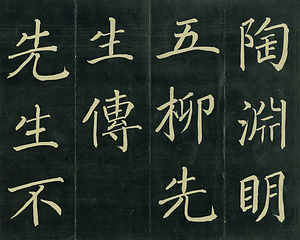 陶淵明
五柳先
生傳
先生不